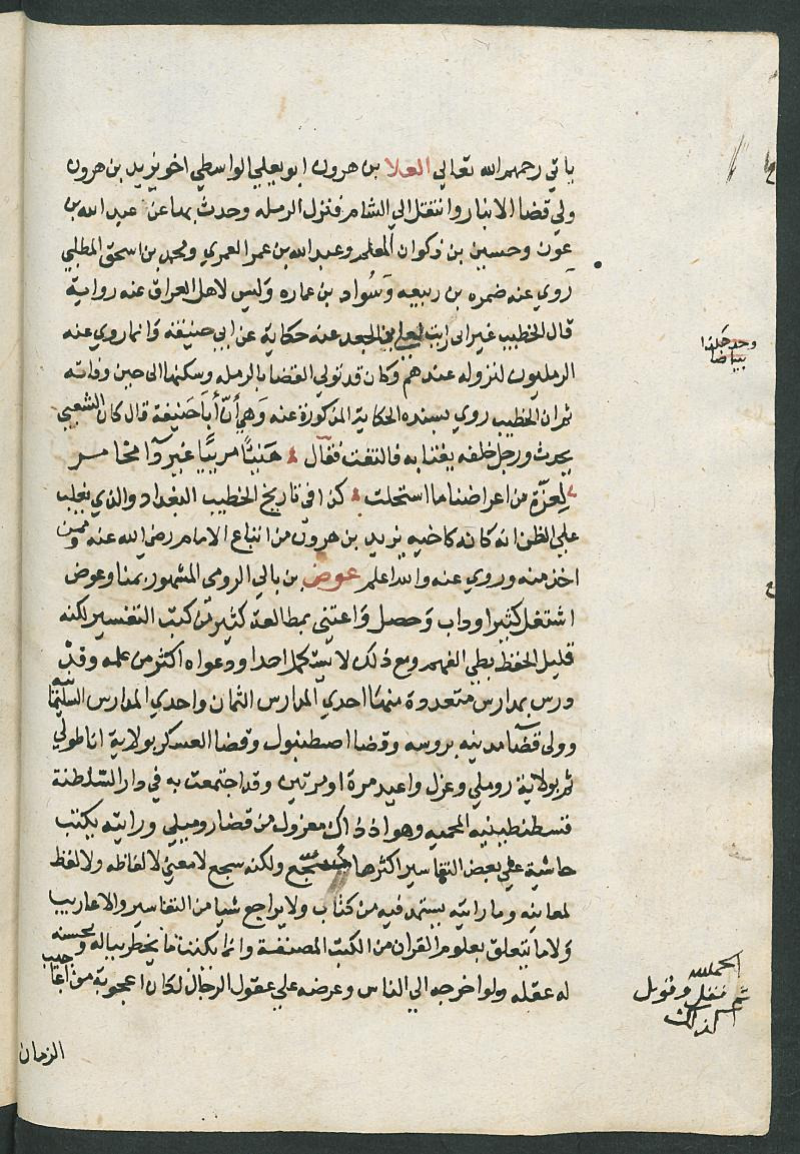 ياتي رحمهم الله تعالي العلا بن هرون ابو يعلي الواسطي اخو يزيد بن هرون
ولي قضا الانبار وانتقل الي الشام فنزل الرمله وحدث بها عن عبد الله بن
عون وحسين بن ذكوان المعلم وعبد الله بن عمر العمري ومحمد بن اسحق المطلبي
روي عنه ضمره بن ربيعه وسواد بن عماره وليس لاهل العراق عنه رواية
قال الخطيب غير اني رايت لعلي بن الجعد عنه حكاية عن ابي حنيفة وانما روي عنه
الرمليون لنزوله عندهم وكان قد تولي القضا بالرمله وسكنها الى حين وفاته
ثم ان الخطيب روي بسنده الحكاية المذكورة عنه وهي أنّ أبا حنيفة قال كان الشعبي
يحدث ورجل خلفه يغتابه فالتفت فقال هنيئا مريئا غير دآ مخامر
لعزّة من اعراضنا ما استحلت كذا في تاريخ الخطيب البغداد والذي يغلب
علي الظن انه كان كاخيه يزيد بن هرون من اتباع الامام رضي الله عنه وممن
اخذ منه وروي عنه والله اعلم عوض بن بالي الرومي المشهور بمنا وعوض
اشتغل كثيرا وداب وحصل واعتني بمطالعة كثير من كتب التفسير لكنه
قليل الحفظ بطي الفهم ومع ذلك لا يستكمل احدا ودعواه اكثر من علمه وقد
درس بمدارس متعددة منها احدي المدارس الثمان واحدي المدارس السليمانية
وولي قضآ مدينه بروسه وقضا اصطنبول وقضا العسكر بولاية اناطولي
ثم بولاية روملي وعزل واعيد مرة او مرتين وقد اجتمعت به في دار السلطنة
قسطنطينيه المحميه وهو اذ ذاك معزول من قضا روميلي ورايته يكتب
حاشية علي بعض التفاسير اكثرها مسجع ولكنه سجع لا معني لالفاظه ولا لفظ
لمعانيه وما رايته يستمد فيه من كتاب ولا يراجع شيا من التفاسير والاعاريب
ولا ما يتعلق بعلوم القران من الكتب المصنفة وانما يكتب ما يخطر بباله ويحسنه
له عقله ولو اخرجه الي الناس وعرضه علي عقول الرجال لكان اعجوبة من اعاجيب
الزمان
وجد هكذا
بياضا
الحمد لله
ثم مقبل وقوبل